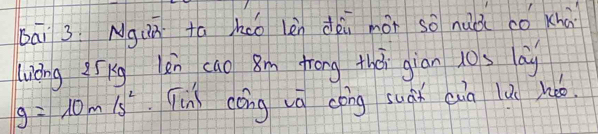 Bài 3. Người ta kéo lên đều một số nước có khối
lượng 25kg lên cao 8m trong thời gian 10s lấy
g = 10m/s². Tính công và công suất của lực kéo.